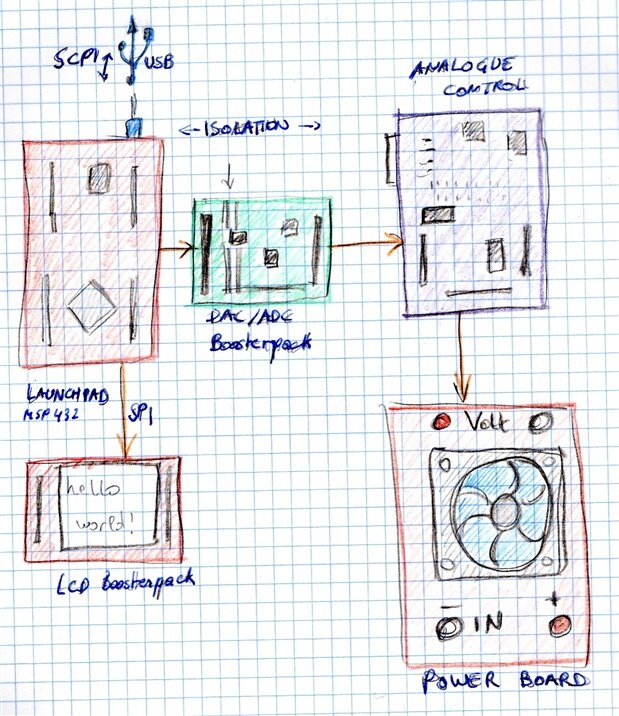 SCPI
USB
ANALOGUE
CONTROL
<-ISOLATION ->
DAC/ADC
Boosterpack
LAUNCHPAD
MSP432
SPI
hello
world!
LCD Boosterpack
Volt
- +
IN
POWER BOARD